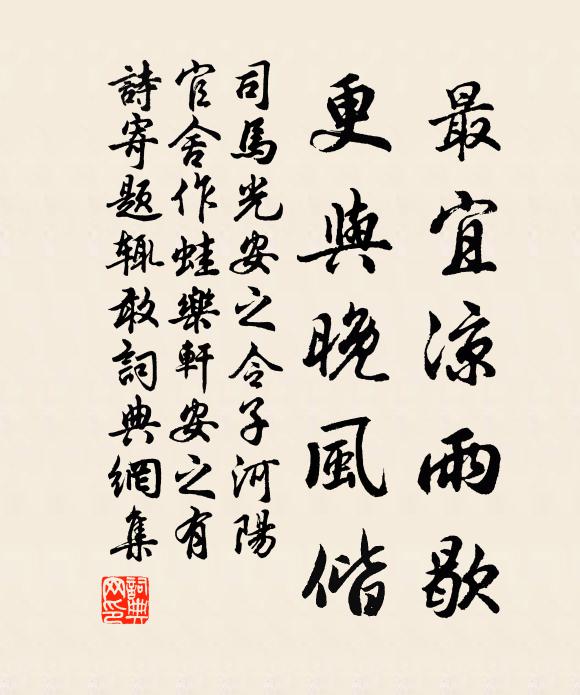 最宜凉雨歇
更與晚風偕
司馬光安之令子河陽
官舍作蛙樂軒安之有
詩寄題輒敢詞典網集
詞典網印